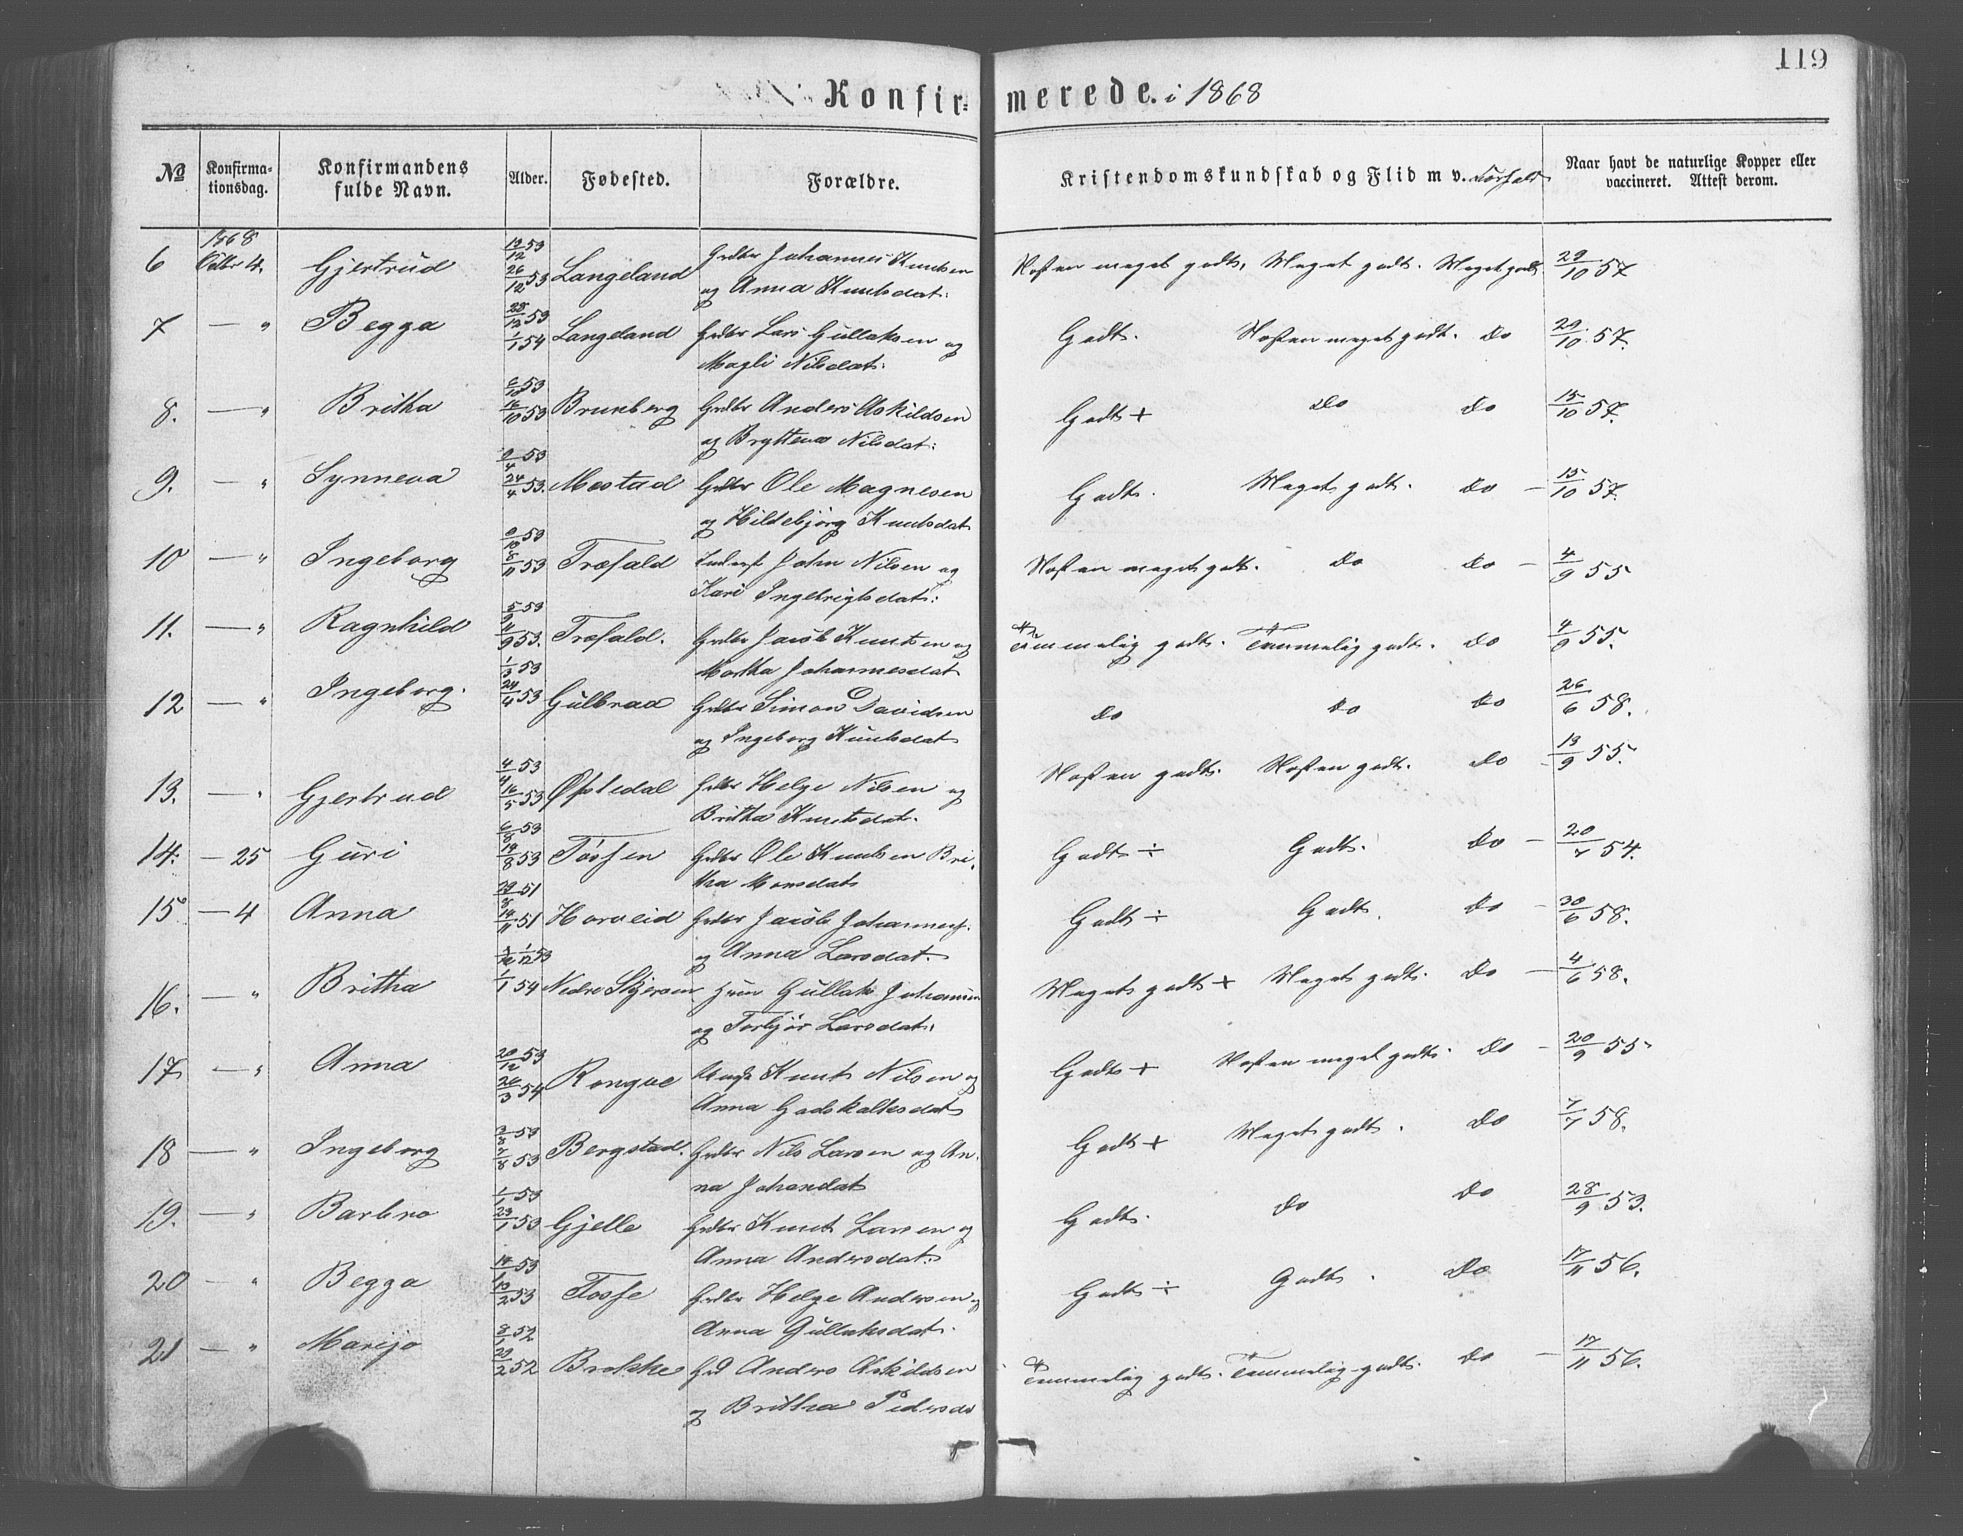 119
Konfir- merede. i 1868
№ Konfirma-tionsdag. Konfirmandens fulde Navn. Alder. Fødested. Forældre. Kristendomskundskab og Flid m v. Forhold Naar havt de naturlige Kopper eller vaccineret. Attest derom.
6 1868 Octbr 4. Gjertrud 12/12 53 26/12 53 Langeland Gdbr Johannes Knutsen Næsten meget godt. Meget godt. Meget godt 29/10 57
og Anna Knutsdat:
7 — " Begga 28/12 53 1/1 54 Langeland Gdbr Lars Gullaksen og Godt. Næsten meget godt. Do 29/10 57.
Magli Nilsdat:
8. — " Britha 6/10 53 16/10 53 Brunborg Gdbr Anders Askildsen Godt + Do Do 15/10 57.
og Brytteva Nilsdat:
9. — " Synneva 9/4 53 24/4 53. Mestad Gdbr Ole Magnesen Godt. Meget godt. Do — 15/10 57.
og Hildebjørg Knutsdat
10 — " Ingeborg 9/10 53 8/11 53 Træfald Inderst John Nilsen og Næsten meget godt. Do Do — 4/9 55
Kari Ingebrigtsdat:
11. — " Ragnhild 5/9 53 11/9 53. Træfald. Gdbr Jacob Knutsen og Temmelig godt. Temmelig godt. Do 4/9 55.
Martha Johannesdat
12 — " Ingeborg. 1/3 53 24/4 53 Gulbraa Gdbr Simon Davidsen Do Do Do 26/6 58.
og Ingeborg Knutsdat
13. — " Gjertrud 4/4 53 16/5 53 Øfstedal Gdbr Helge Nilsen og Næsten godt. Næsten godt. Do 13/9 55.
Britha Knutsdat.
14. — 25 Guri 6/8 53 14/8 53 Fossen Gdbr Ole Knutsen Bri- Godt ÷ Godt. Do — 20/7 54.
tha Monsdat
15 — 4 Anna 29/8 51 14/11 51 Horveid Gdbr Jacob Johannes: Godt ÷ Godt. Do — 30/6 58.
og Anna Larsdat.
16. — " Britha 1/12 53 1/1 54 Nedre Skjerven Gullak Johannesen Meget godt + Meget godt. Do — 4/6 58.
og Torbjør Larsdat:
17 — " Anna 20/12 53 26/3 54 Rongve Knut Nilsen og Godt + Næsten meget godt. Do — 20/9 55
Anna Godskalksdat
18 — " Ingeborg 3/8 53 7/8 53 Bergstad. Gdbr Nils Larsen og An- Godt + Meget godt. Do 7/7 58.
na Johandat
19. — " Barbro 1/1 53 23/1 53 Gjelle Gdbr Knut Larsen og Godt. Do Do 28/9 53.
Anna Andersdat:
20 — " Begga 14/1 53 13/2 53 Fosse Gdbr Helge Andersen og Godt ÷ Godt. Do 17/11 56.
Anna Gullaksdat.
21 — " Marijo 8/1 52 29/2 52 Brekke Gd Anders Askildsen Temmelig godt. Temmelig godt. Do — 17/11 56.
og Britha Pedersda